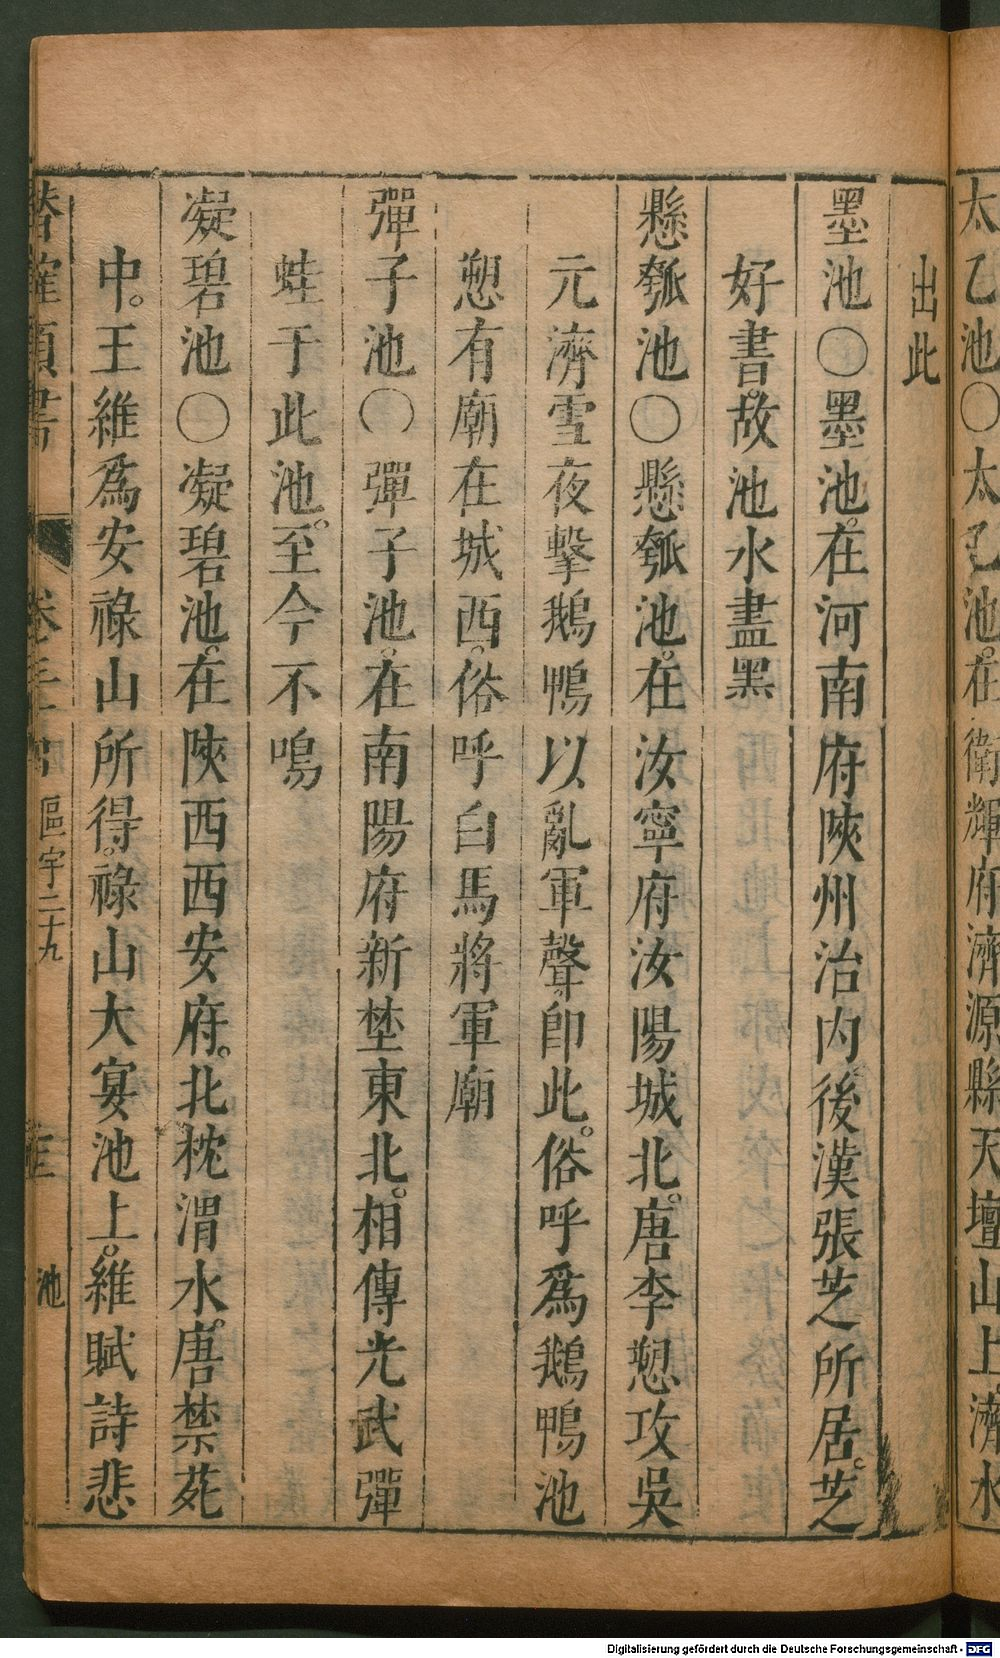 太乙池○太乙池。在衛輝府濟源縣天壇山上。濟水
出此
墨池○墨池。在河南府陝州治内後漢張芝所居。芝
好書。故池水盡黑
懸瓠池○懸瓠池。在汝寧府汝陽城北。唐李愬攻吳
元濟雪夜擊鵝鴨以亂軍聲即此。俗呼爲鵝鴨池
愬有廟在城西。俗呼白馬將軍廟
彈子池○彈子池。在南陽府新埜東北。相傳光武彈
蛙于此池。至今不鳴
凝碧池○凝碧池。在陝西西安府。北枕渭水。唐禁苑
中。王維爲安祿山所得。祿山大宴池上。維賦詩悲
潛確類書 卷三十 區宇二十九 池
Digitalisierung gefördert durch die Deutsche Forschungsgemeinschaft - DFG